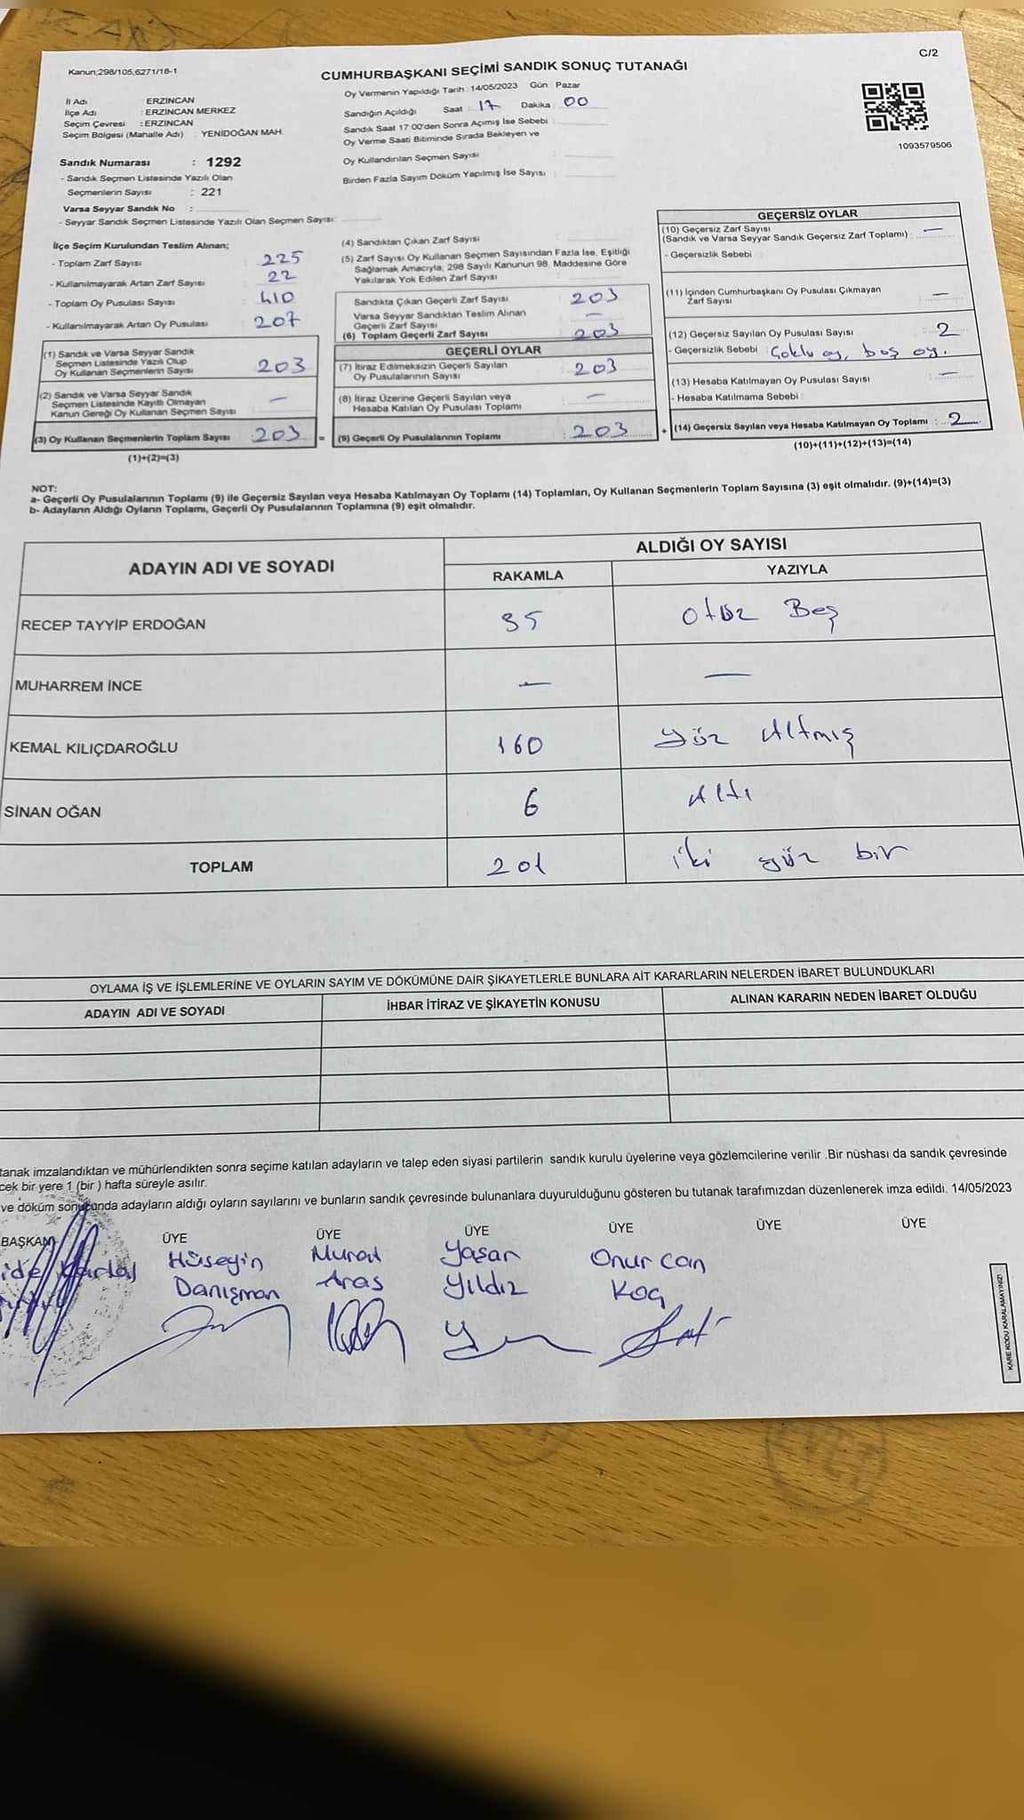 Kanun;298/105,6271/18-1
C/2
CUMHURBAŞKANI SEÇİMİ SANDIK SONUÇ TUTANAĞI
Oy Vermenin Yapıldığı Tarih : 14/05/2023 Gün : Pazar
İl Adı : ERZINCAN
İlçe Adı : ERZINCAN MERKEZ
Seçim Çevresi : ERZINCAN
Seçim Bölgesi (Mahalle Adı) : YENİDOĞAN MAH.
Sandığın Açıldığı Saat 17 Dakika 00
Sandık Saat 17:00'den Sonra Açılmış İse Sebebi
Oy Verme Saati Bitiminde Sırada Bekleyen ve
Oy Kullandırılan Seçmen Sayısı
Birden Fazla Sayım Döküm Yapılmış İse Sayısı
1093579506
Sandık Numarası : 1292
- Sandık Seçmen Listesinde Yazılı Olan
Seçmenlerin Sayısı : 221
Varsa Seyyar Sandık No :
- Seyyar Sandık Seçmen Listesinde Yazılı Olan Seçmen Sayısı:
İlçe Seçim Kurulundan Teslim Alınan;
- Toplam Zarf Sayısı 225
- Kullanılmayarak Artan Zarf Sayısı 22
- Toplam Oy Pusulası Sayısı 410
- Kullanılmayarak Artan Oy Pusulası 207
(1) Sandık ve Varsa Seyyar Sandık
Seçmen Listesinde Yazılı Olup
Oy Kullanan Seçmenlerin Sayısı 203
(2) Sandık ve Varsa Seyyar Sandık
Seçmen Listesinde Kayıtlı Olmayan
Kanun Gereği Oy Kullanan Seçmen Sayısı —
(3) Oy Kullanan Seçmenlerin Toplam Sayısı 203 =
(1)+(2)=(3)
(4) Sandıktan Çıkan Zarf Sayısı
(5) Zarf Sayısı Oy Kullanan Seçmen Sayısından Fazla İse, Eşitliği
Sağlamak Amacıyla, 298 Sayılı Kanunun 98. Maddesine Göre
Yakılarak Yok Edilen Zarf Sayısı
Sandıkta Çıkan Geçerli Zarf Sayısı 203
Varsa Seyyar Sandıktan Teslim Alınan
Geçerli Zarf Sayısı —
(6) Toplam Geçerli Zarf Sayısı 203
GEÇERLİ OYLAR
(7) İtiraz Edilmeksizin Geçerli Sayılan
Oy Pusulalarının Sayısı 203
(8) İtiraz Üzerine Geçerli Sayılan veya
Hesaba Katılan Oy Pusulası Toplamı —
(9) Geçerli Oy Pusulalarının Toplamı 203 +
GEÇERSİZ OYLAR
(10) Geçersiz Zarf Sayısı
(Sandık ve Varsa Seyyar Sandık Geçersiz Zarf Toplamı) : —
- Geçersizlik Sebebi
(11) İçinden Cumhurbaşkanı Oy Pusulası Çıkmayan
Zarf Sayısı —
(12) Geçersiz Sayılan Oy Pusulası Sayısı 2
- Geçersizlik Sebebi Çoklu oy, boş oy.
(13) Hesaba Katılmayan Oy Pusulası Sayısı —
- Hesaba Katılmama Sebebi
(14) Geçersiz Sayılan veya Hesaba Katılmayan Oy Toplamı : 2
(10)+(11)+(12)+(13)=(14)
NOT:
a- Geçerli Oy Pusulalarının Toplamı (9) ile Geçersiz Sayılan veya Hesaba Katılmayan Oy Toplamı (14) Toplamları, Oy Kullanan Seçmenlerin Toplam Sayısına (3) eşit olmalıdır. (9)+(14)=(3)
b- Adayların Aldığı Oyların Toplamı, Geçerli Oy Pusulalarının Toplamına (9) eşit olmalıdır.
ADAYIN ADI VE SOYADI
ALDIĞI OY SAYISI
RAKAMLA YAZIYLA
RECEP TAYYİP ERDOĞAN 35 otuz Beş
MUHARREM İNCE — —
KEMAL KILIÇDAROĞLU 160 yüz Altmış
SİNAN OĞAN 6 Altı
TOPLAM 201 iki yüz bir
OYLAMA İŞ VE İŞLEMLERİNE VE OYLARIN SAYIM VE DÖKÜMÜNE DAİR ŞİKAYETLERLE BUNLARA AİT KARARLARIN NELERDEN İBARET BULUNDUKLARI
ADAYIN ADI VE SOYADI İHBAR İTİRAZ VE ŞİKAYETİN KONUSU ALINAN KARARIN NEDEN İBARET OLDUĞU
tanak imzalandıktan ve mühürlendikten sonra seçime katılan adayların ve talep eden siyasi partilerin sandık kurulu üyelerine veya gözlemcilerine verilir .Bir nüshası da sandık çevresinde
cek bir yere 1 (bir ) hafta süreyle asılır.
ve döküm sonucunda adayların aldığı oyların sayılarını ve bunların sandık çevresinde bulunanlara duyurulduğunu gösteren bu tutanak tarafımızdan düzenlenerek imza edildi. 14/05/2023
BAŞKAN ÜYE ÜYE ÜYE ÜYE ÜYE ÜYE
Hüseyin Murat Yaşar Onur can
Danışman Aras Yıldız Koç
KARE KODU KARALAMAYINIZ!